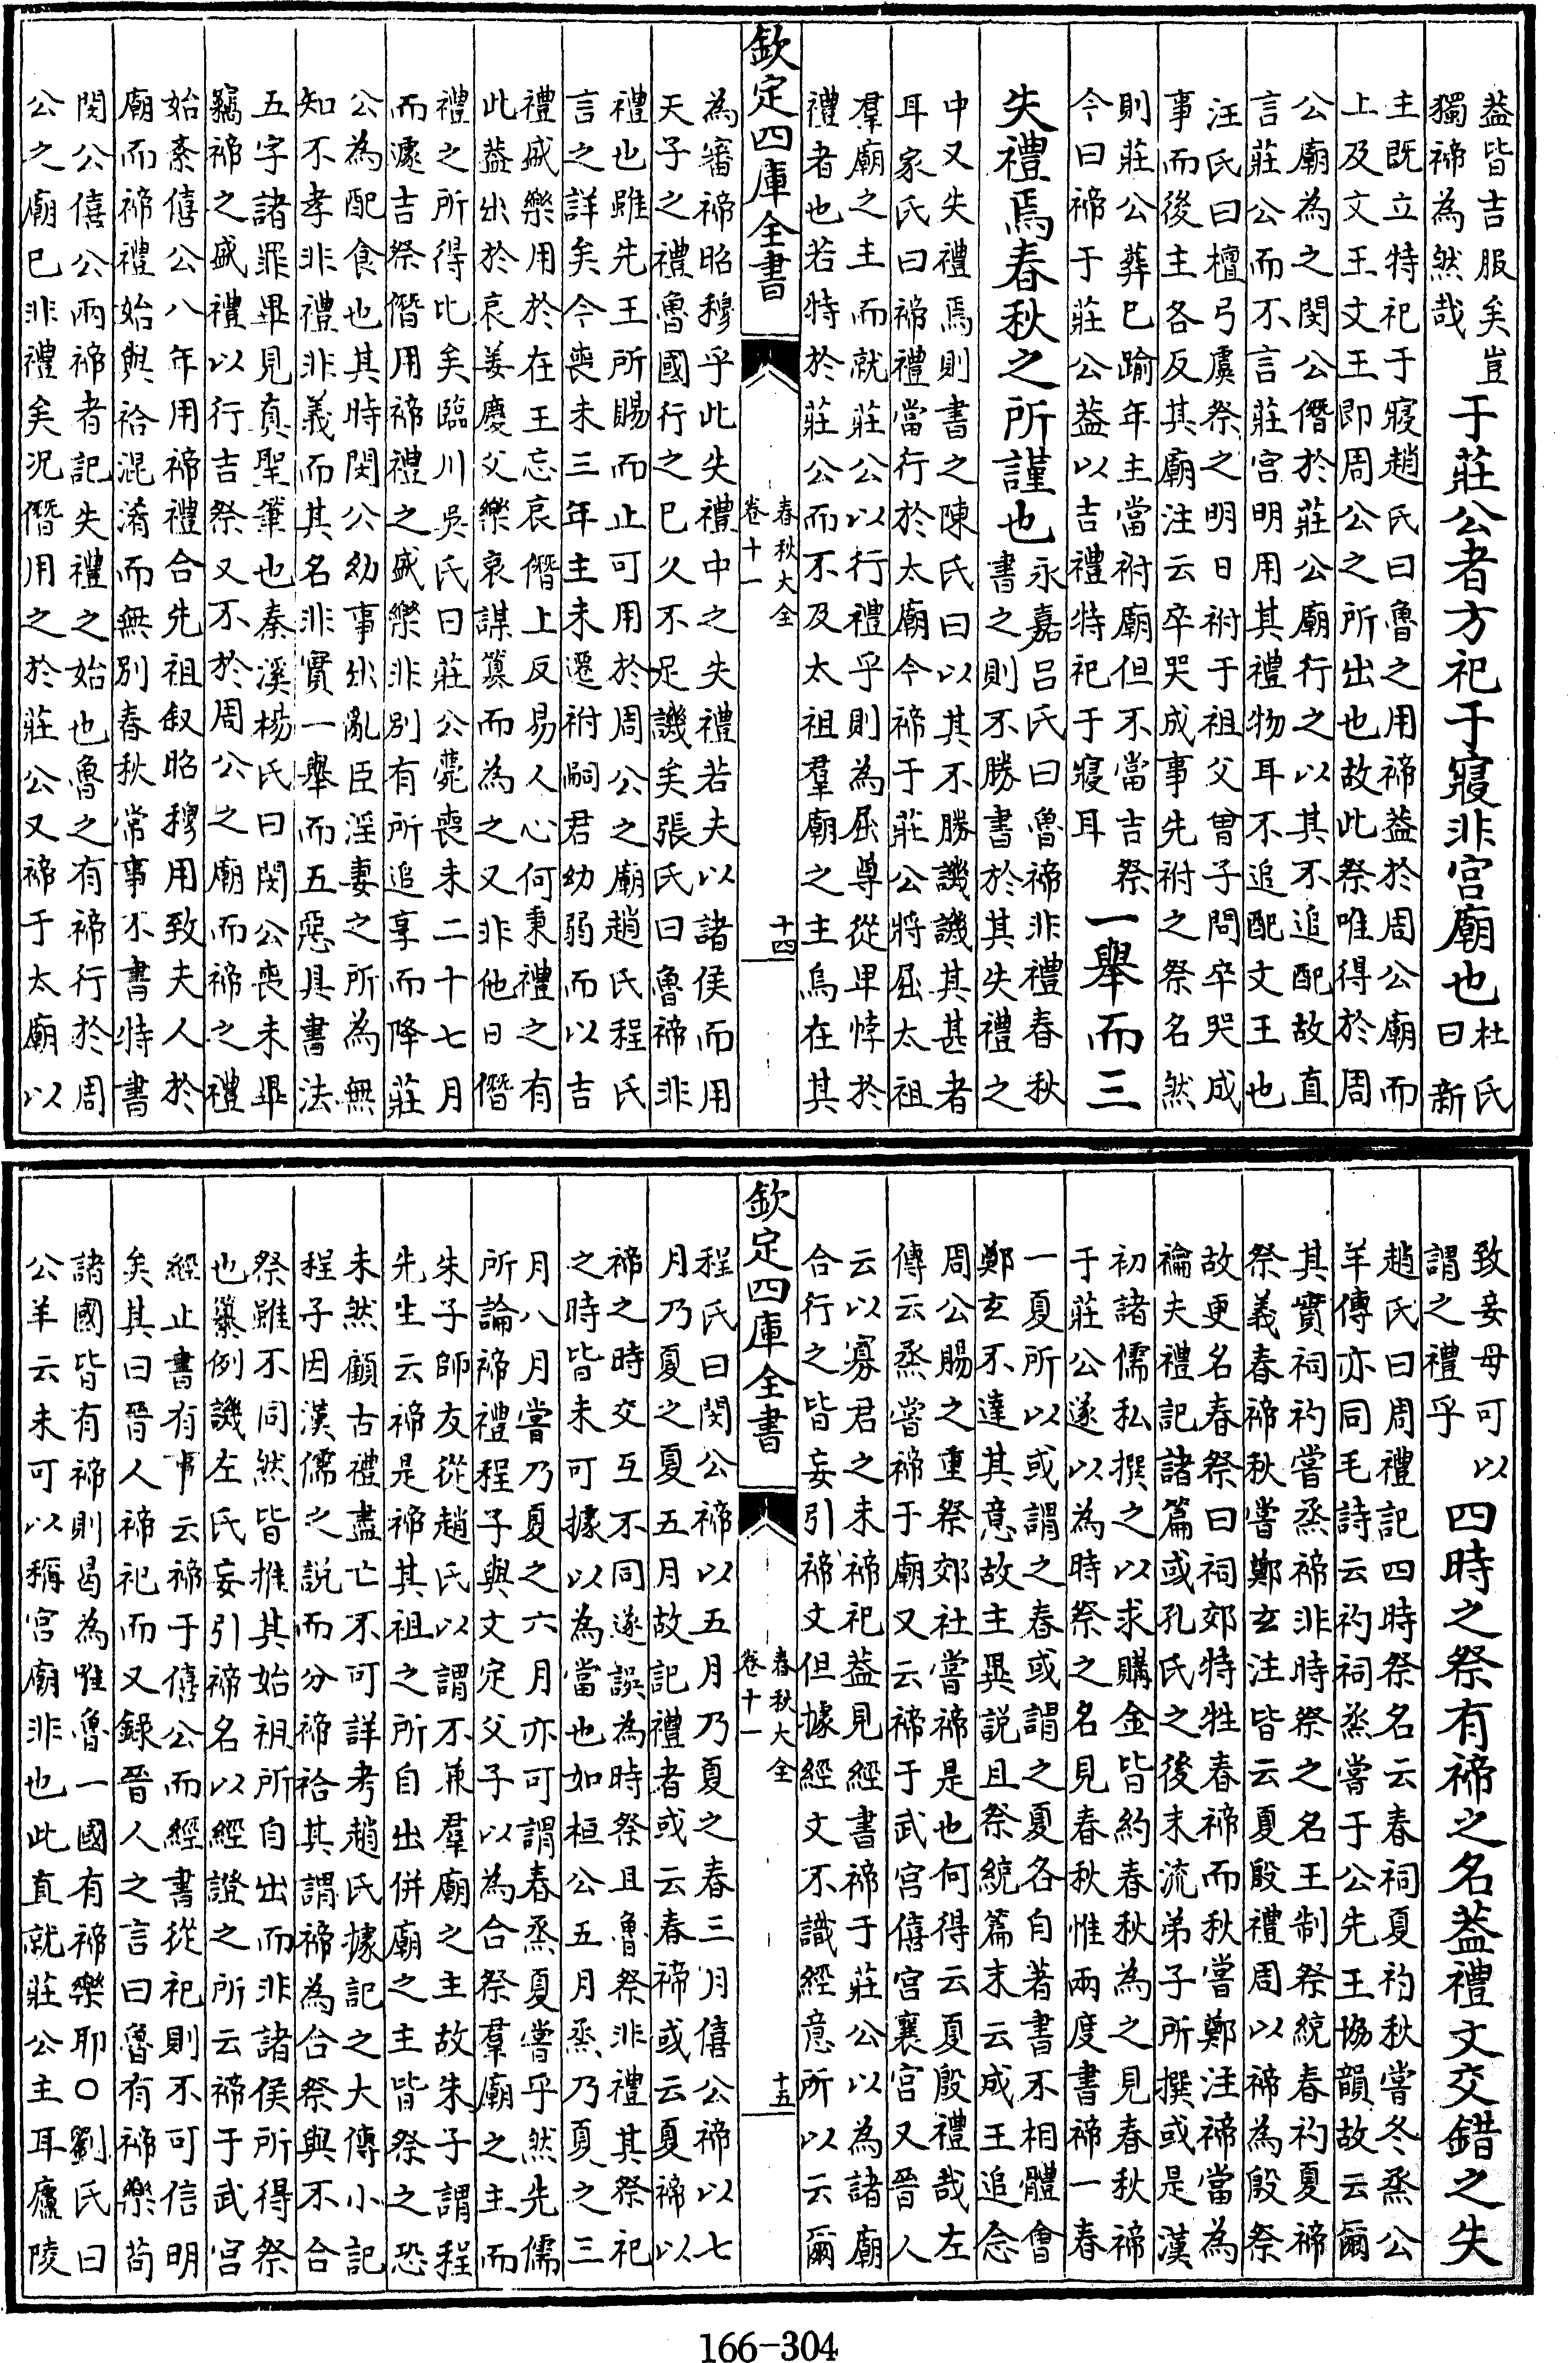 葢皆吉服矣豈
獨禘為然哉
于莊公者方祀于寢非宫廟也
杜氏
曰新
主既立特祀于寢趙氏曰魯之用禘葢於周公廟而
上及文王文王即周公之所出也故此祭唯得於周
公廟為之閔公僭於莊公廟行之以其不追配故直
言莊公而不言莊宫明用其禮物耳不追配文王也
汪氏曰檀弓虞祭之明日祔于祖父曾子問卒哭成
事而後主各反其廟注云卒哭成事先祔之祭名然
則莊公葬巳踰年主當祔廟但不當吉祭
今曰禘于莊公葢以吉禮特祀于寢耳
一舉而三
失禮焉春秋之所謹也
永嘉吕氏曰魯禘非禮春秋
書之則不勝書於其失禮之
中又失禮焉則書之陳氏曰以其不勝譏譏其甚者
耳家氏曰禘禮當行於太廟今禘于莊公將屈太祖
羣廟之主而就莊公以行禮乎則為屈尊從卑悖於
禮者也若特於莊公而不及太祖羣廟之主烏在其
欽定四庫全書
春秋大全
卷十一
十四
為審禘昭穆乎此失禮中之失禮若夫以諸侯而用
天子之禮魯國行之巳久不足譏矣張氏曰魯禘非
禮也雖先王所賜而止可用於周公之廟趙氏程氏
言之詳矣今喪未三年主未遷祔嗣君幼弱而以吉
禮盛樂用於在王忘哀僭上反易人心何秉禮之有
此葢出於哀姜慶父樂哀謀簒而為之又非他日僭
禮之所得比矣臨川吳氏曰莊公薨喪未二十七月
而遽吉祭僭用禘禮之盛樂非别有所追享而降莊
公為配食也其時閔公幼事出亂臣淫妻之所為無
知不孝非禮非義而其名非實一舉而五惡具書法
五字諸罪畢見真聖筆也秦溪楊氏曰閔公喪未畢
竊禘之盛禮以行吉祭又不於周公之廟而禘之禮
始紊僖公八年用禘禮合先祖叙昭穆用致夫人於
廟而禘禮始與祫混淆而無别春秋常事不書特書
閔公僖公兩禘者記失禮之始也魯之有禘行於周
公之廟巳非禮矣况僭用之於莊公又禘于太廟以
致妾母可以
謂之禮乎
四時之祭有禘之名葢禮文交錯之失
趙氏曰周禮記四時祭名云春祠夏礿秋嘗冬烝公
羊傳亦同毛詩云礿祠烝嘗于公先王協韻故云爾
其實祠礿嘗烝禘非時祭之名王制祭統春礿夏禘
祭義春禘秋嘗鄭玄注皆云夏殷禮周以禘為殷祭
故更名春祭曰祠郊特牲春禘而秋嘗鄭注禘當為
禴夫禮記諸篇或孔氏之後末流弟子所撰或是漢
初諸儒私撰之以求購金皆約春秋為之見春秋禘
于莊公遂以為時祭之名見春秋惟兩度書禘一春
一夏所以或謂之春或謂之夏各自著書不相體會
鄭玄不達其意故主異説且祭統篇末云成王追念
周公賜之重祭郊社嘗禘是也何得云夏殷禮哉左
傳云烝嘗禘于廟又云禘于武宫僖宫襄宫又晉人
云以寡君之未禘祀葢見經書禘于莊公以為諸廟
合行之皆妄引禘文但據經文不識經意所以云爾
欽定四庫全書
春秋大全
卷十一
十五
程氏曰閔公禘以五月乃夏之春三月僖公禘以七
月乃夏之夏五月故記禮者或云春禘或云夏禘以
禘之時交互不同遂誤為時祭且魯祭非禮其祭祀
之時皆未可據以為當也如桓公五月烝乃夏之三
月八月嘗乃夏之六月亦可謂春烝夏嘗乎然先儒
所論禘禮程子與文定父子以為合祭羣廟之主而
朱子師友從趙氏以謂不兼羣廟之主故朱子謂程
先生云禘是禘其祖之所自出併廟之主皆祭之恐
未然顧古禮盡亡不可詳考趙氏據記之大傳小記
程子因漢儒之説而分禘祫其謂禘為合祭與不合
祭雖不同然皆推其始祖所自出而非諸侯所得祭
也纂例譏左氏妄引禘名以經證之所云禘于武宫
經止書有事云禘于僖公而經書從祀則不可信明
矣其曰晉人禘祀而又錄晉人之言曰魯有禘樂茍
諸國皆有禘則曷為唯魯一國有禘樂耶○劉氏曰
公羊云未可以稱宫廟非也此直就莊公主耳廬陵
166-304